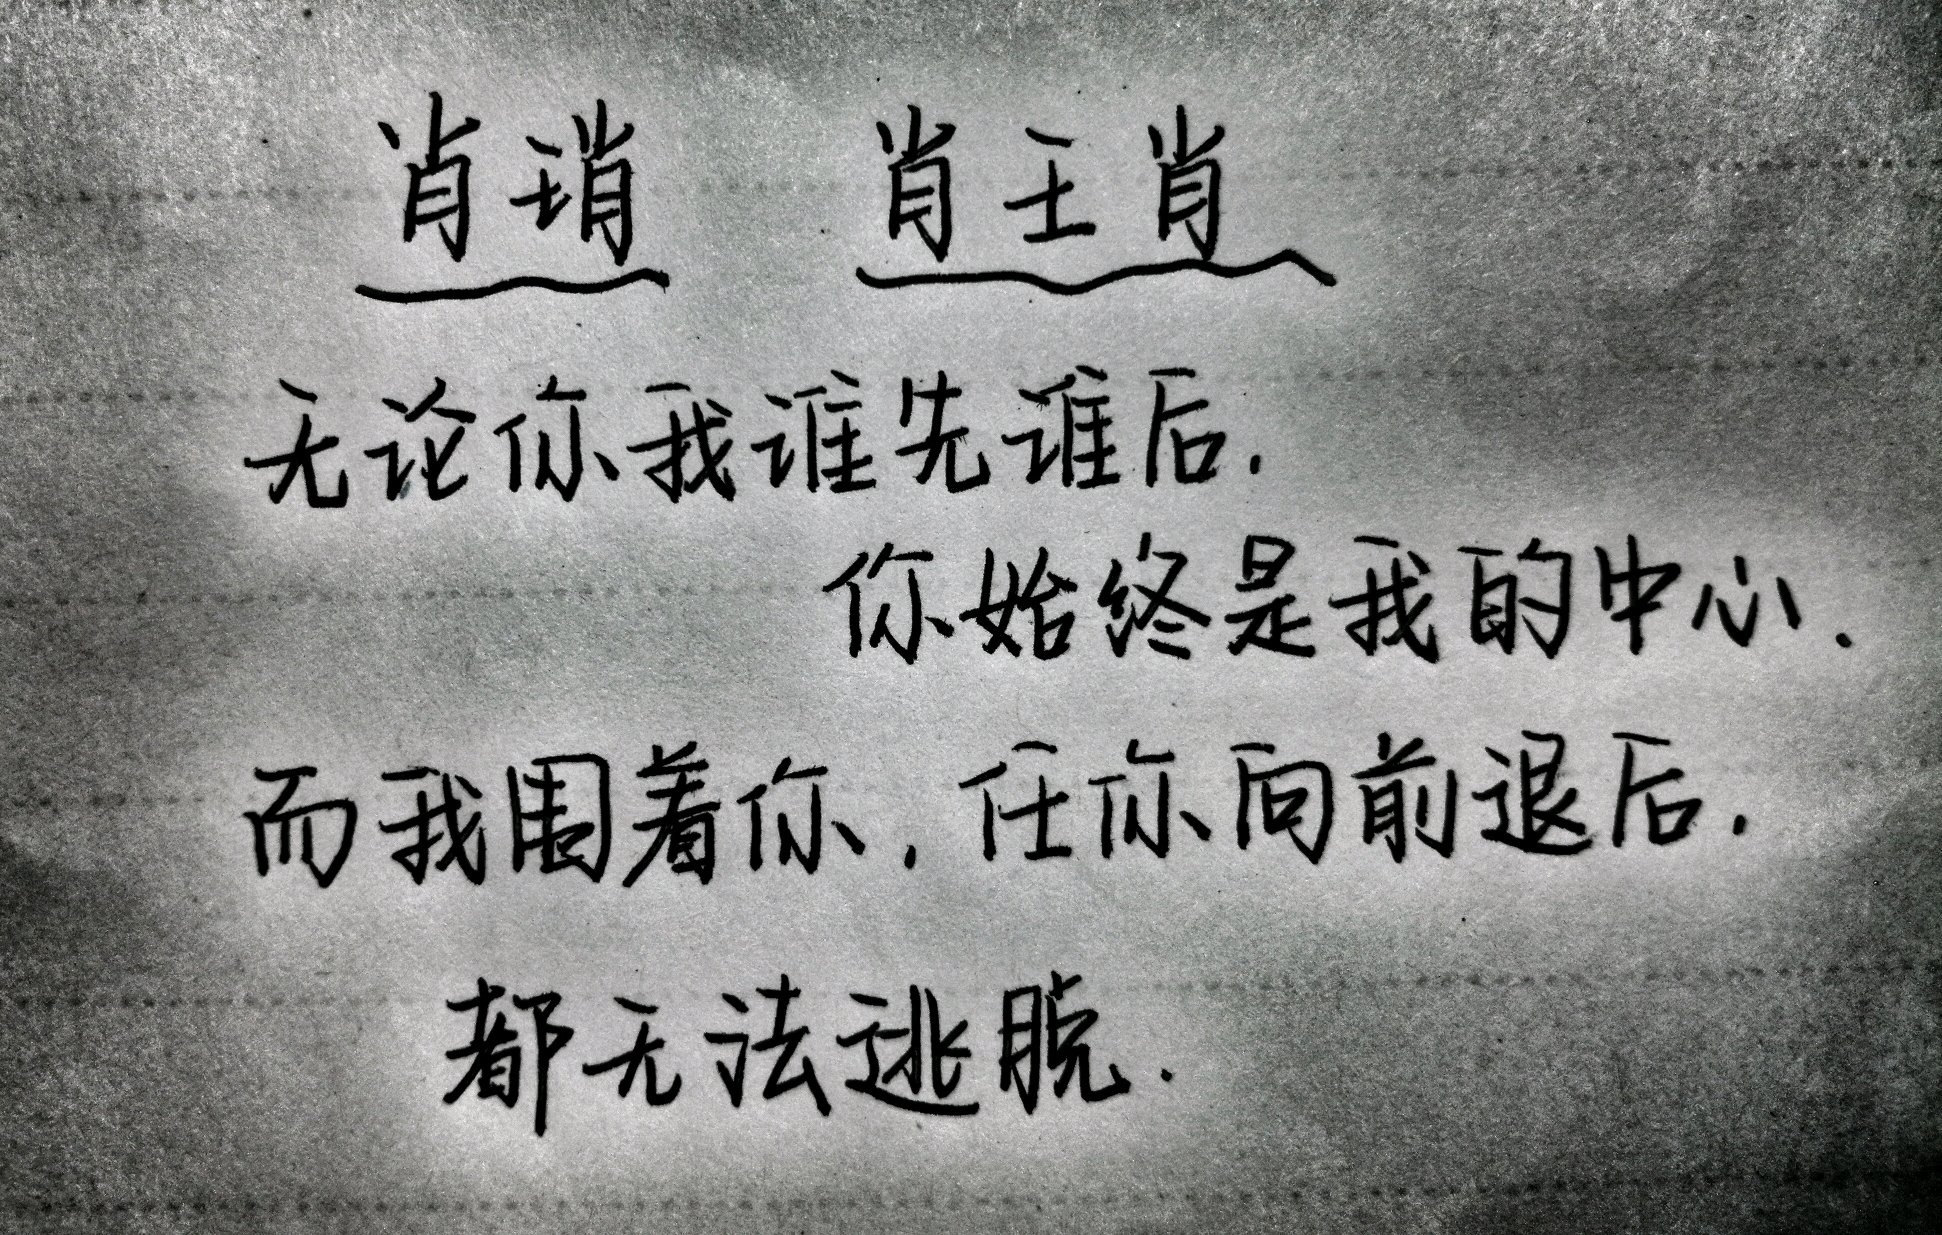 肖琑 肖王肖
无论你我谁先谁后.
你始终是我的中心.
而我围着你.任你向前退后.
都无法逃脱.